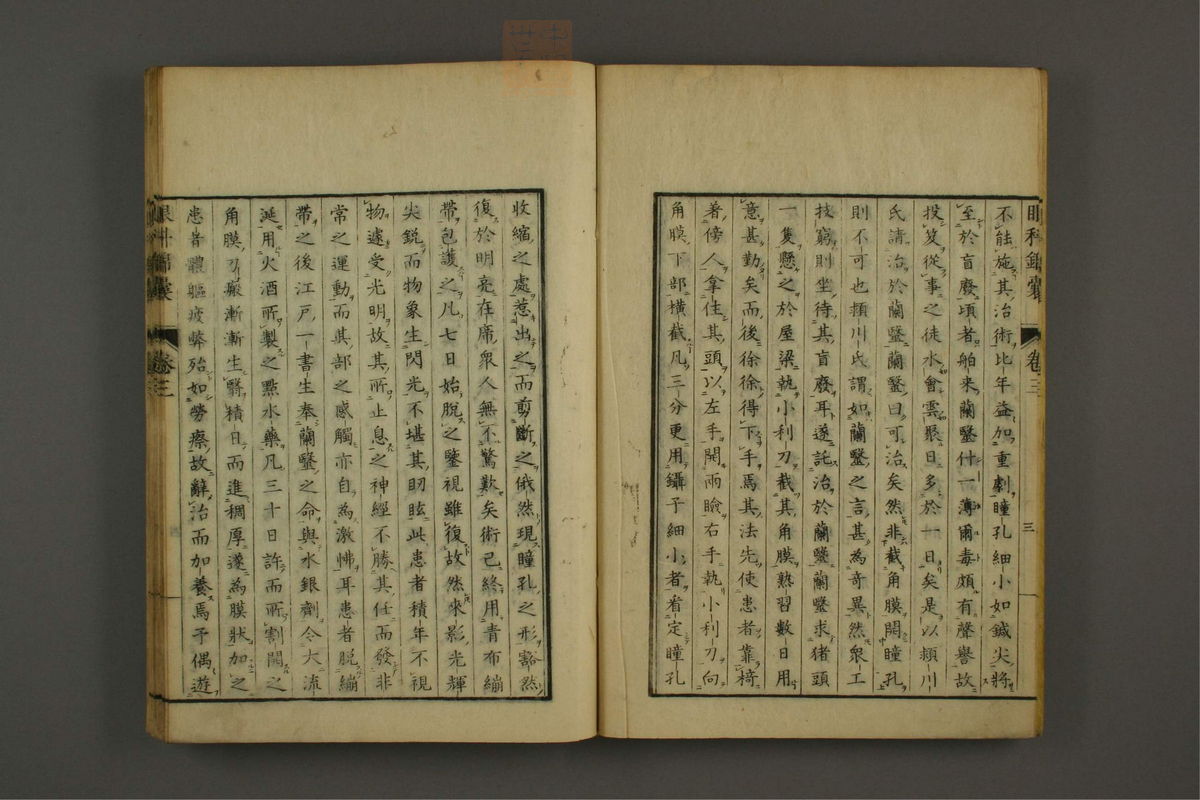 眼科錦囊 卷三
三
不能施其治術比年益加重劇瞳孔細小如鍼尖將
至於盲廢頃者舶來蘭醫什一薄爾毒頗有聲譽故
投笈從事之徒水會雲聚日多於一日矣是以頰川
氏請治於蘭醫蘭醫曰可治矣然非截角膜開瞳孔
則不可也頰川氏謂如蘭醫之言甚為奇異然眾工
技窮則坐待其盲廢耳遂託治於蘭醫蘭醫求猪頭
一隻懸之於屋梁執小利刀截其角膜熟習數日用
意甚勤矣而後徐徐得下手焉其法先使患者靠椅
著傍人拿住其頭以左手開兩瞼右手執小利刀向
角膜下部橫截凡三分更用鑷子細小者看定瞳孔
收縮之處惹出之而剪斷之俄然現瞳孔之形豁然
復於明亮在席眾人無不驚歎矣術已終用青布繃
帶包護之凡七日始脫之鑒視雖復故然來影光輝
尖銳而物象生閃光不堪其眀眩此患者積年不視
物遽受光明故其所止息之神經不勝其任而發非
常之運動而其部之感觸亦自為激怫耳患者脫繃
帶之後江戶一書生奉蘭醫之命與水銀劑令大流
涎用火酒所製之點水藥凡三十日許而所割開之
角膜刀瘢漸漸生翳積日而進稠厚遂為膜狀加之
患者體軀疲弊殆如勞瘵故辭治而加養焉予偶遊
眼科錦囊 卷三